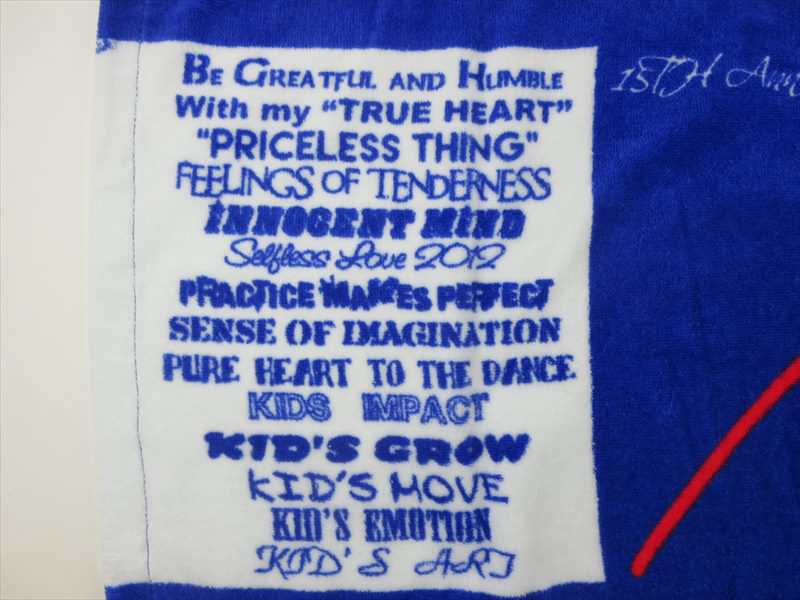 BE GREATFUL AND HUMBLE
With my "TRUE HEART"
"PRICELESS THING"
FEELINGS OF TENDERNESS
INNOCENT MIND
Selfless Love 2012
PRACTICE MAKES PERFECT
SENSE OF IMAGINATION
PURE HEART TO THE DANCE
KIDS IMPACT
KID'S GROW
KID'S MOVE
KID'S EMOTION
KID'S ART
15TH